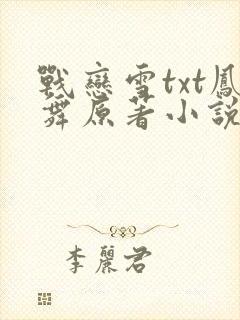 戰戀雪txt鳳
舞原著小說
李麗君